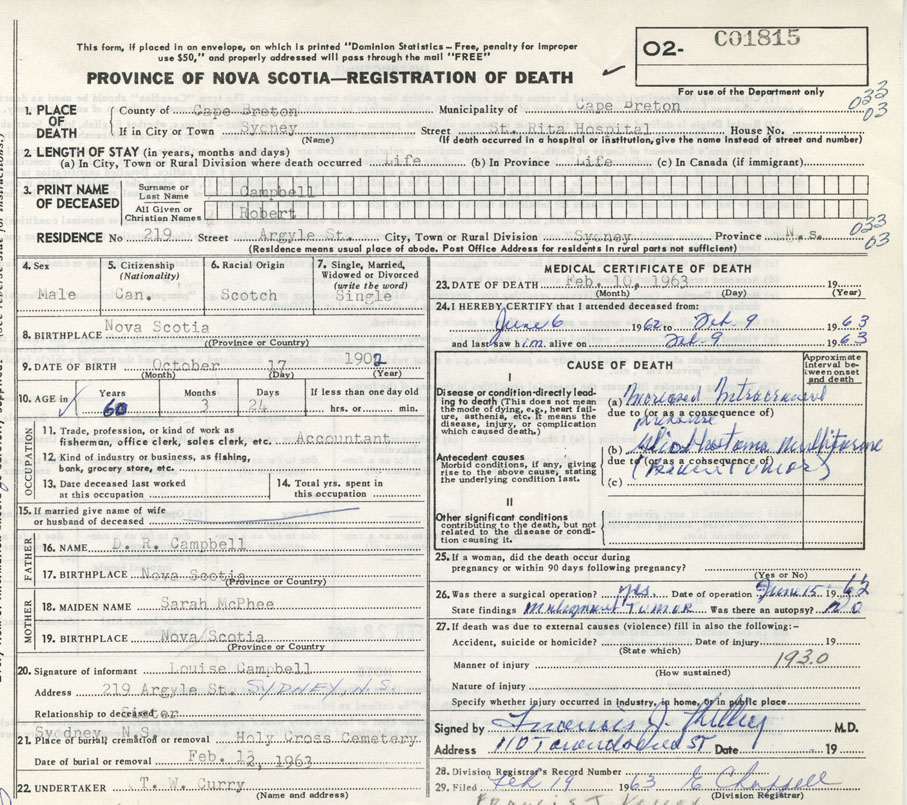 This form, if placed in an envelope, on which is printed "Dominion Statistics – Free, penalty for improper
use $50," and properly addressed will pass through the mail "FREE"
PROVINCE OF NOVA SCOTIA—REGISTRATION OF DEATH
O2- C01815
For use of the Department only
1. PLACE OF DEATH
County of Cape Breton Municipality of Cape Breton 033
If in City or Town Sydney Street St. Rita Hospital House No. 03
(Name) (If death occurred in a hospital or institution, give the name instead of street and number)
2. LENGTH OF STAY (in years, months and days)
(a) In City, Town or Rural Division where death occurred Life (b) In Province Life (c) In Canada (if immigrant)
3. PRINT NAME OF DECEASED
Surname or Last Name Campbell
All Given or Christian Names Robert
RESIDENCE No 219 Street Argyle St. City, Town or Rural Division Sydney Province N.S. 033 03
(Residence means usual place of abode. Post Office Address for residents in rural parts not sufficient)
4. Sex
Male
5. Citizenship
(Nationality)
Can.
6. Racial Origin
Scotch
7. Single, Married,
Widowed or Divorced
(write the word)
Single
8. BIRTHPLACE Nova Scotia
(Province or Country)
9. DATE OF BIRTH October 17 1902
(Month) (Day) (Year)
10. AGE in
Years
60
Months
3
Days
24
If less than one day old
hrs. or min.
OCCUPATION
11. Trade, profession, or kind of work as
fisherman, office clerk, sales clerk, etc. Accountant
12. Kind of industry or business, as fishing,
bank, grocery store, etc.
13. Date deceased last worked
at this occupation
14. Total yrs. spent in
this occupation
15. If married give name of wife
or husband of deceased
FATHER
16. NAME D. R. Campbell
17. BIRTHPLACE Nova Scotia
(Province or Country)
MOTHER
18. MAIDEN NAME Sarah McPhee
19. BIRTHPLACE Nova Scotia
(Province or Country)
20. Signature of informant Louise Campbell
Address 219 Argyle St. SYDNEY, N.S.
Relationship to deceased Sister
Sydney N.S.
21. Place of burial, cremation or removal Holy Cross Cemetery
Date of burial or removal Feb. 13, 1963
22. UNDERTAKER T. W. Curry
(Name and address)
MEDICAL CERTIFICATE OF DEATH
23. DATE OF DEATH Feb. 10, 1963 19
(Month) (Day) (Year)
24. I HEREBY CERTIFY that I attended deceased from:
June 6 1962 to Feb. 9 1963
and last saw him alive on Feb. 9 1963
CAUSE OF DEATH
Approximate
interval be-
tween onset
and death
I
Disease or condition-directly lead-
ing to death (This does not mean
the mode of dying, e.g., heart fail-
ure, asthenia, etc. It means the
disease, injury, or complication
which caused death.)
(a) Increased Intracranial
due to (or as a consequence of)
pressure
Antecedent causes
Morbid conditions, if any, giving
rise to the above cause, stating
the underlying condition last.
(b) Multiforme
due to (or as a consequence of)
(Brain Tumor)
(c)
II
Other significant conditions
contributing to the death, but not
related to the disease or condi-
tion causing it.
25. If a woman, did the death occur during
pregnancy or within 90 days following pregnancy?
(Yes or No)
26. Was there a surgical operation? yes. Date of operation June 15 1962
State findings Malignant Tumor Was there an autopsy? no
27. If death was due to external causes (violence) fill in also the following:-
Accident, suicide or homicide? Date of injury 19
(State which)
193.0
Manner of injury
(How sustained)
Nature of injury
Specify whether injury occurred in industry, in home, or in public place
Signed by Francis J. M.D.
Address 110 St Date 19
28. Division Registrar's Record Number
29. Filed Feb 19 1963 E Chappell
(Division Registrar)